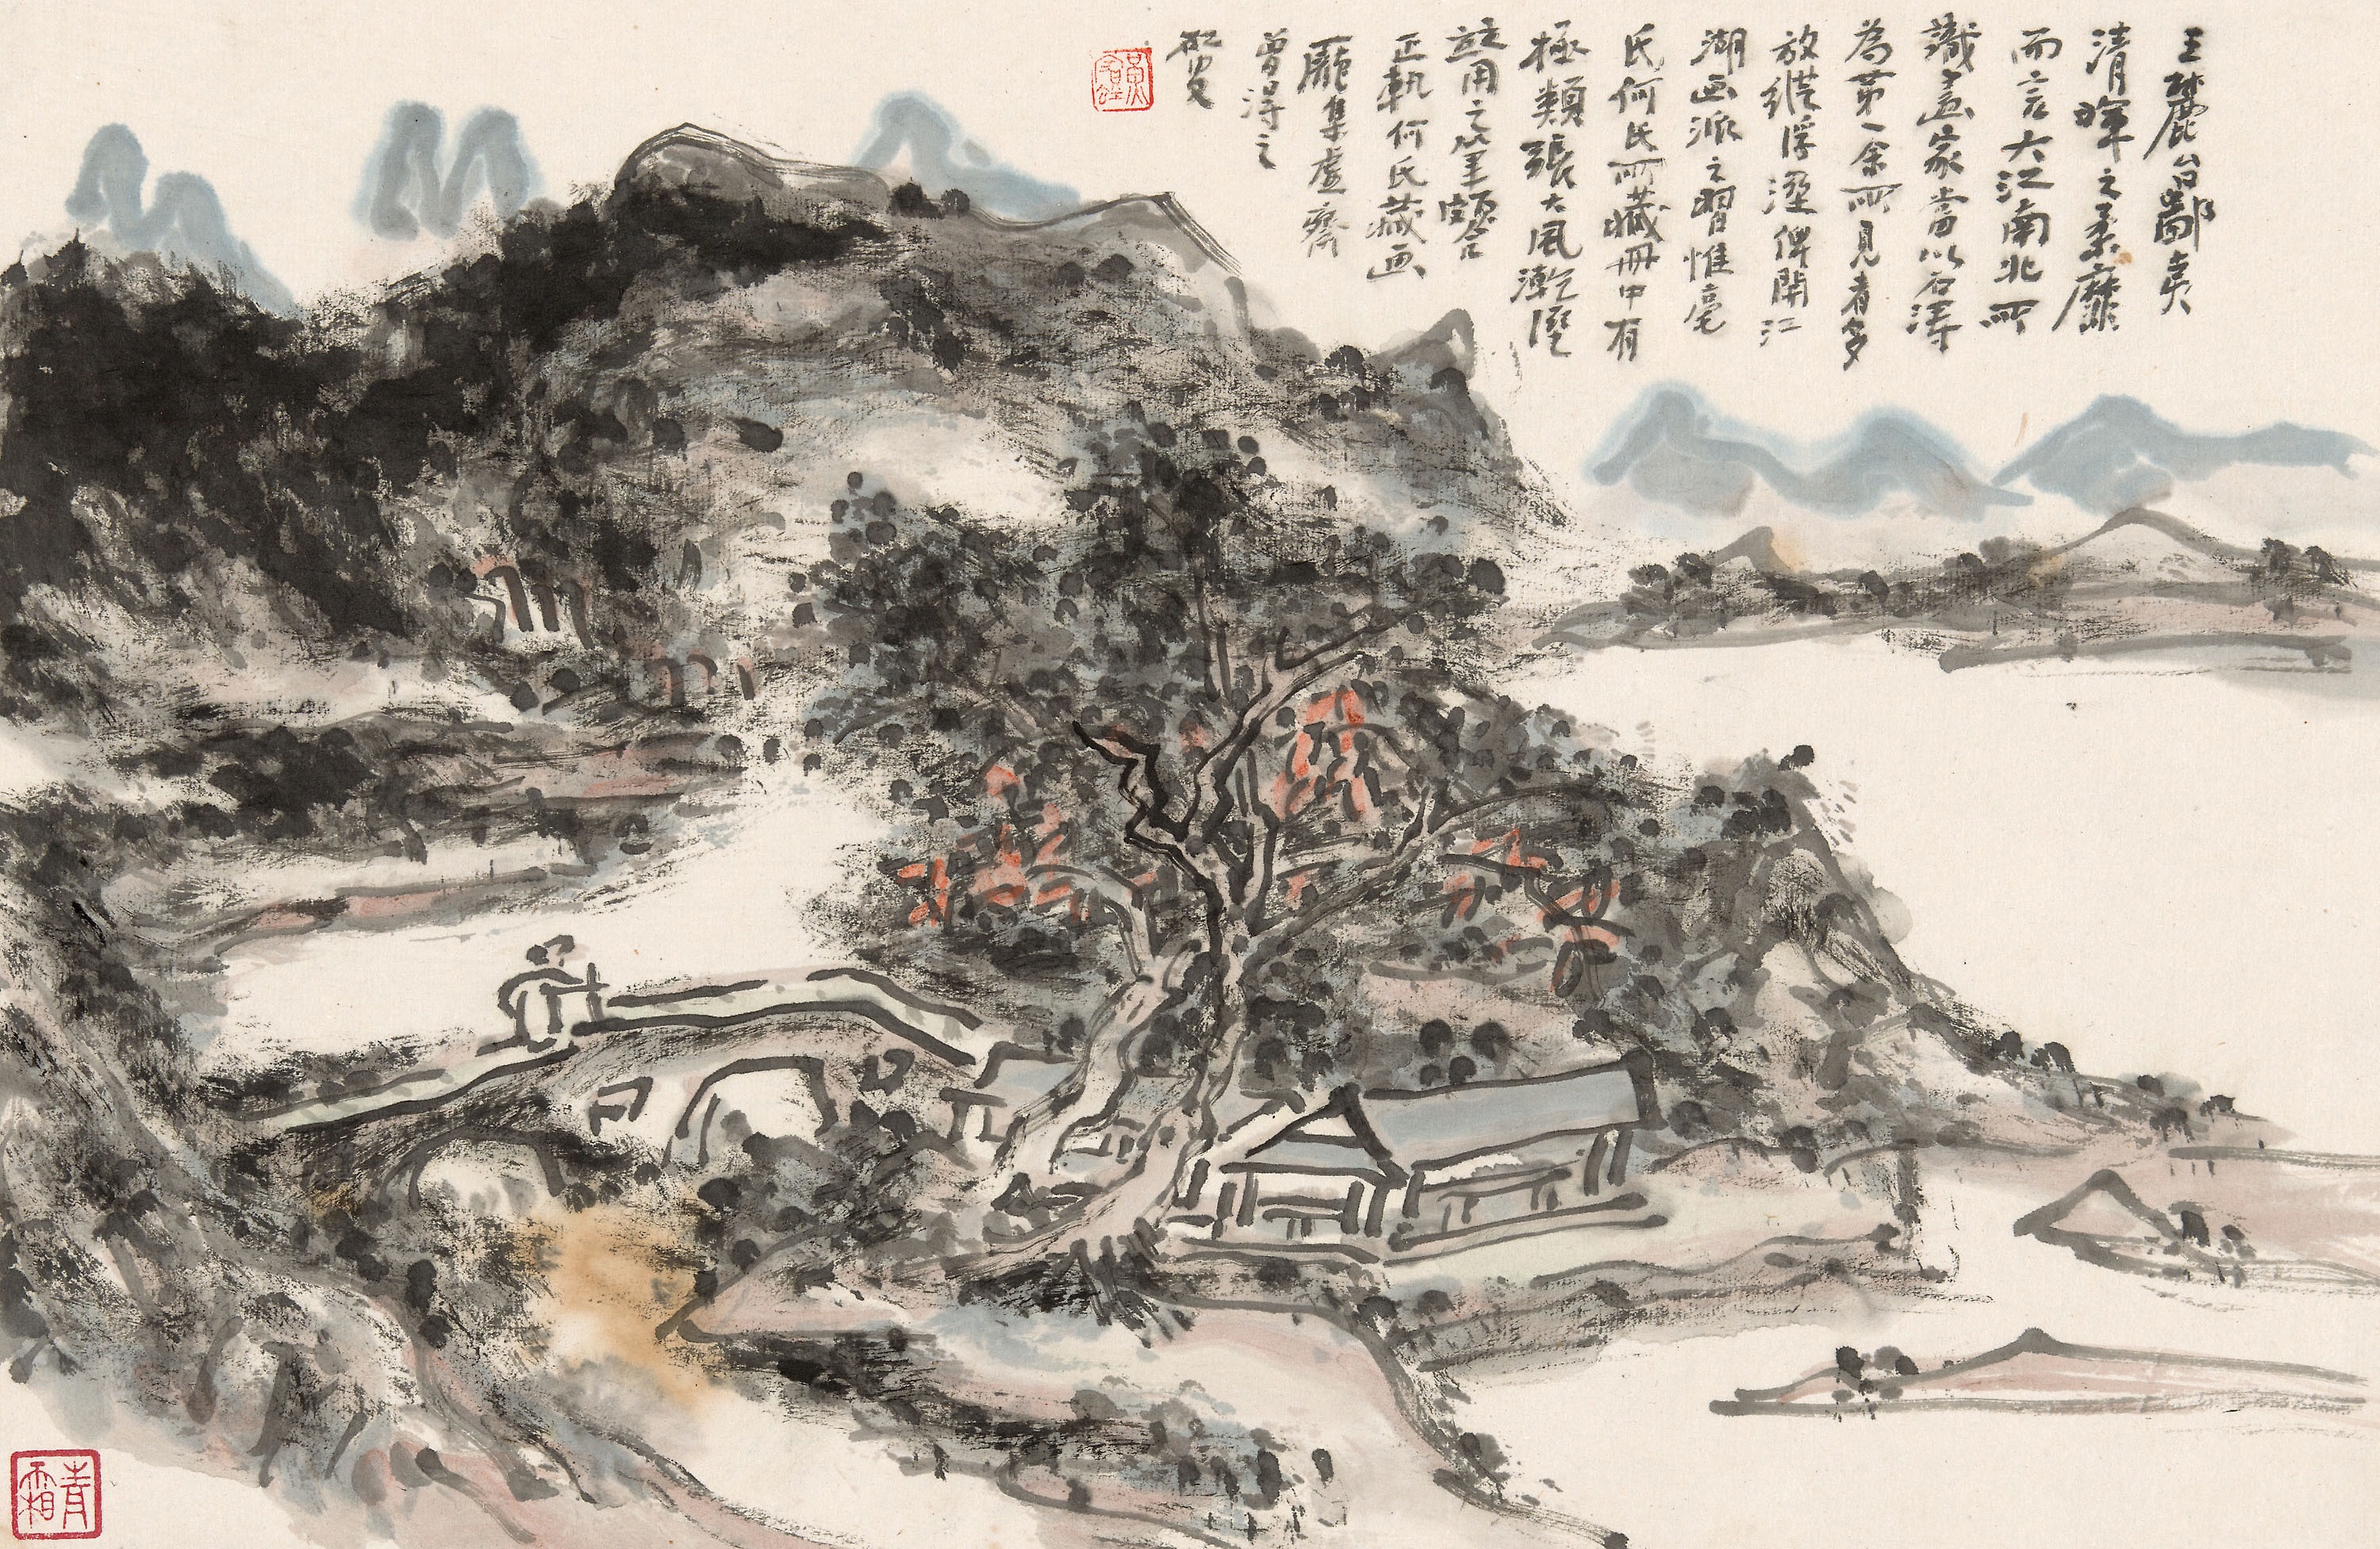 王麓台鄙夷
清暉之柔靡
而言大江南北所
識畫家當以石濤
為第一余所見者多
放縱浮溼俾開江
湖画派之習惟亳
氏何氏所藏冊中有
極類張大風乾溼
竝用之筆頗合
正軌何氏藏画
龐集虛齋
曾得之
虹叟
黃賓虹
青霜